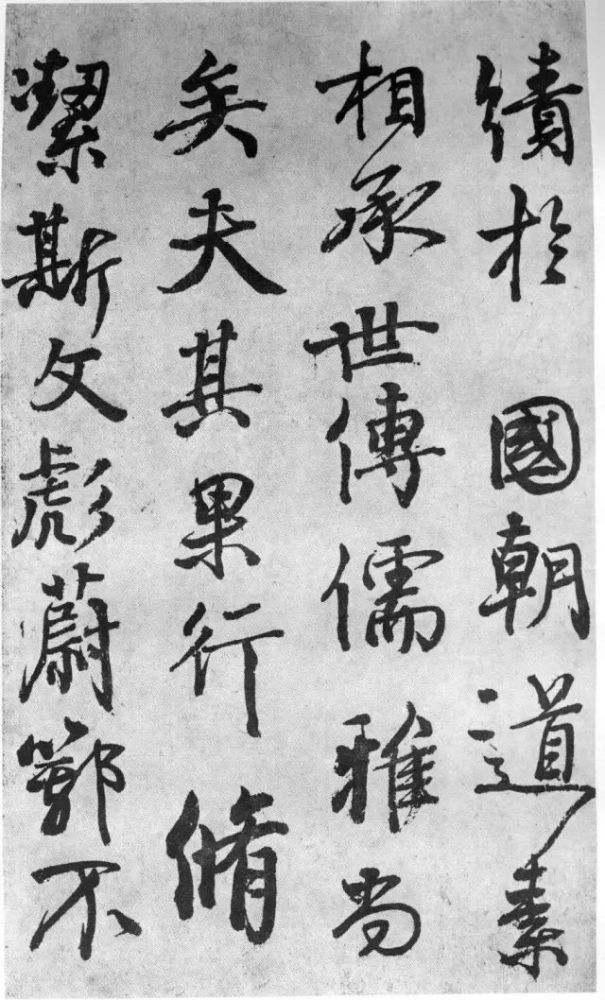 績於　國朝道素
相承世傳儒雅尚
矣夫其果行脩
潔斯文彪蔚鄂不